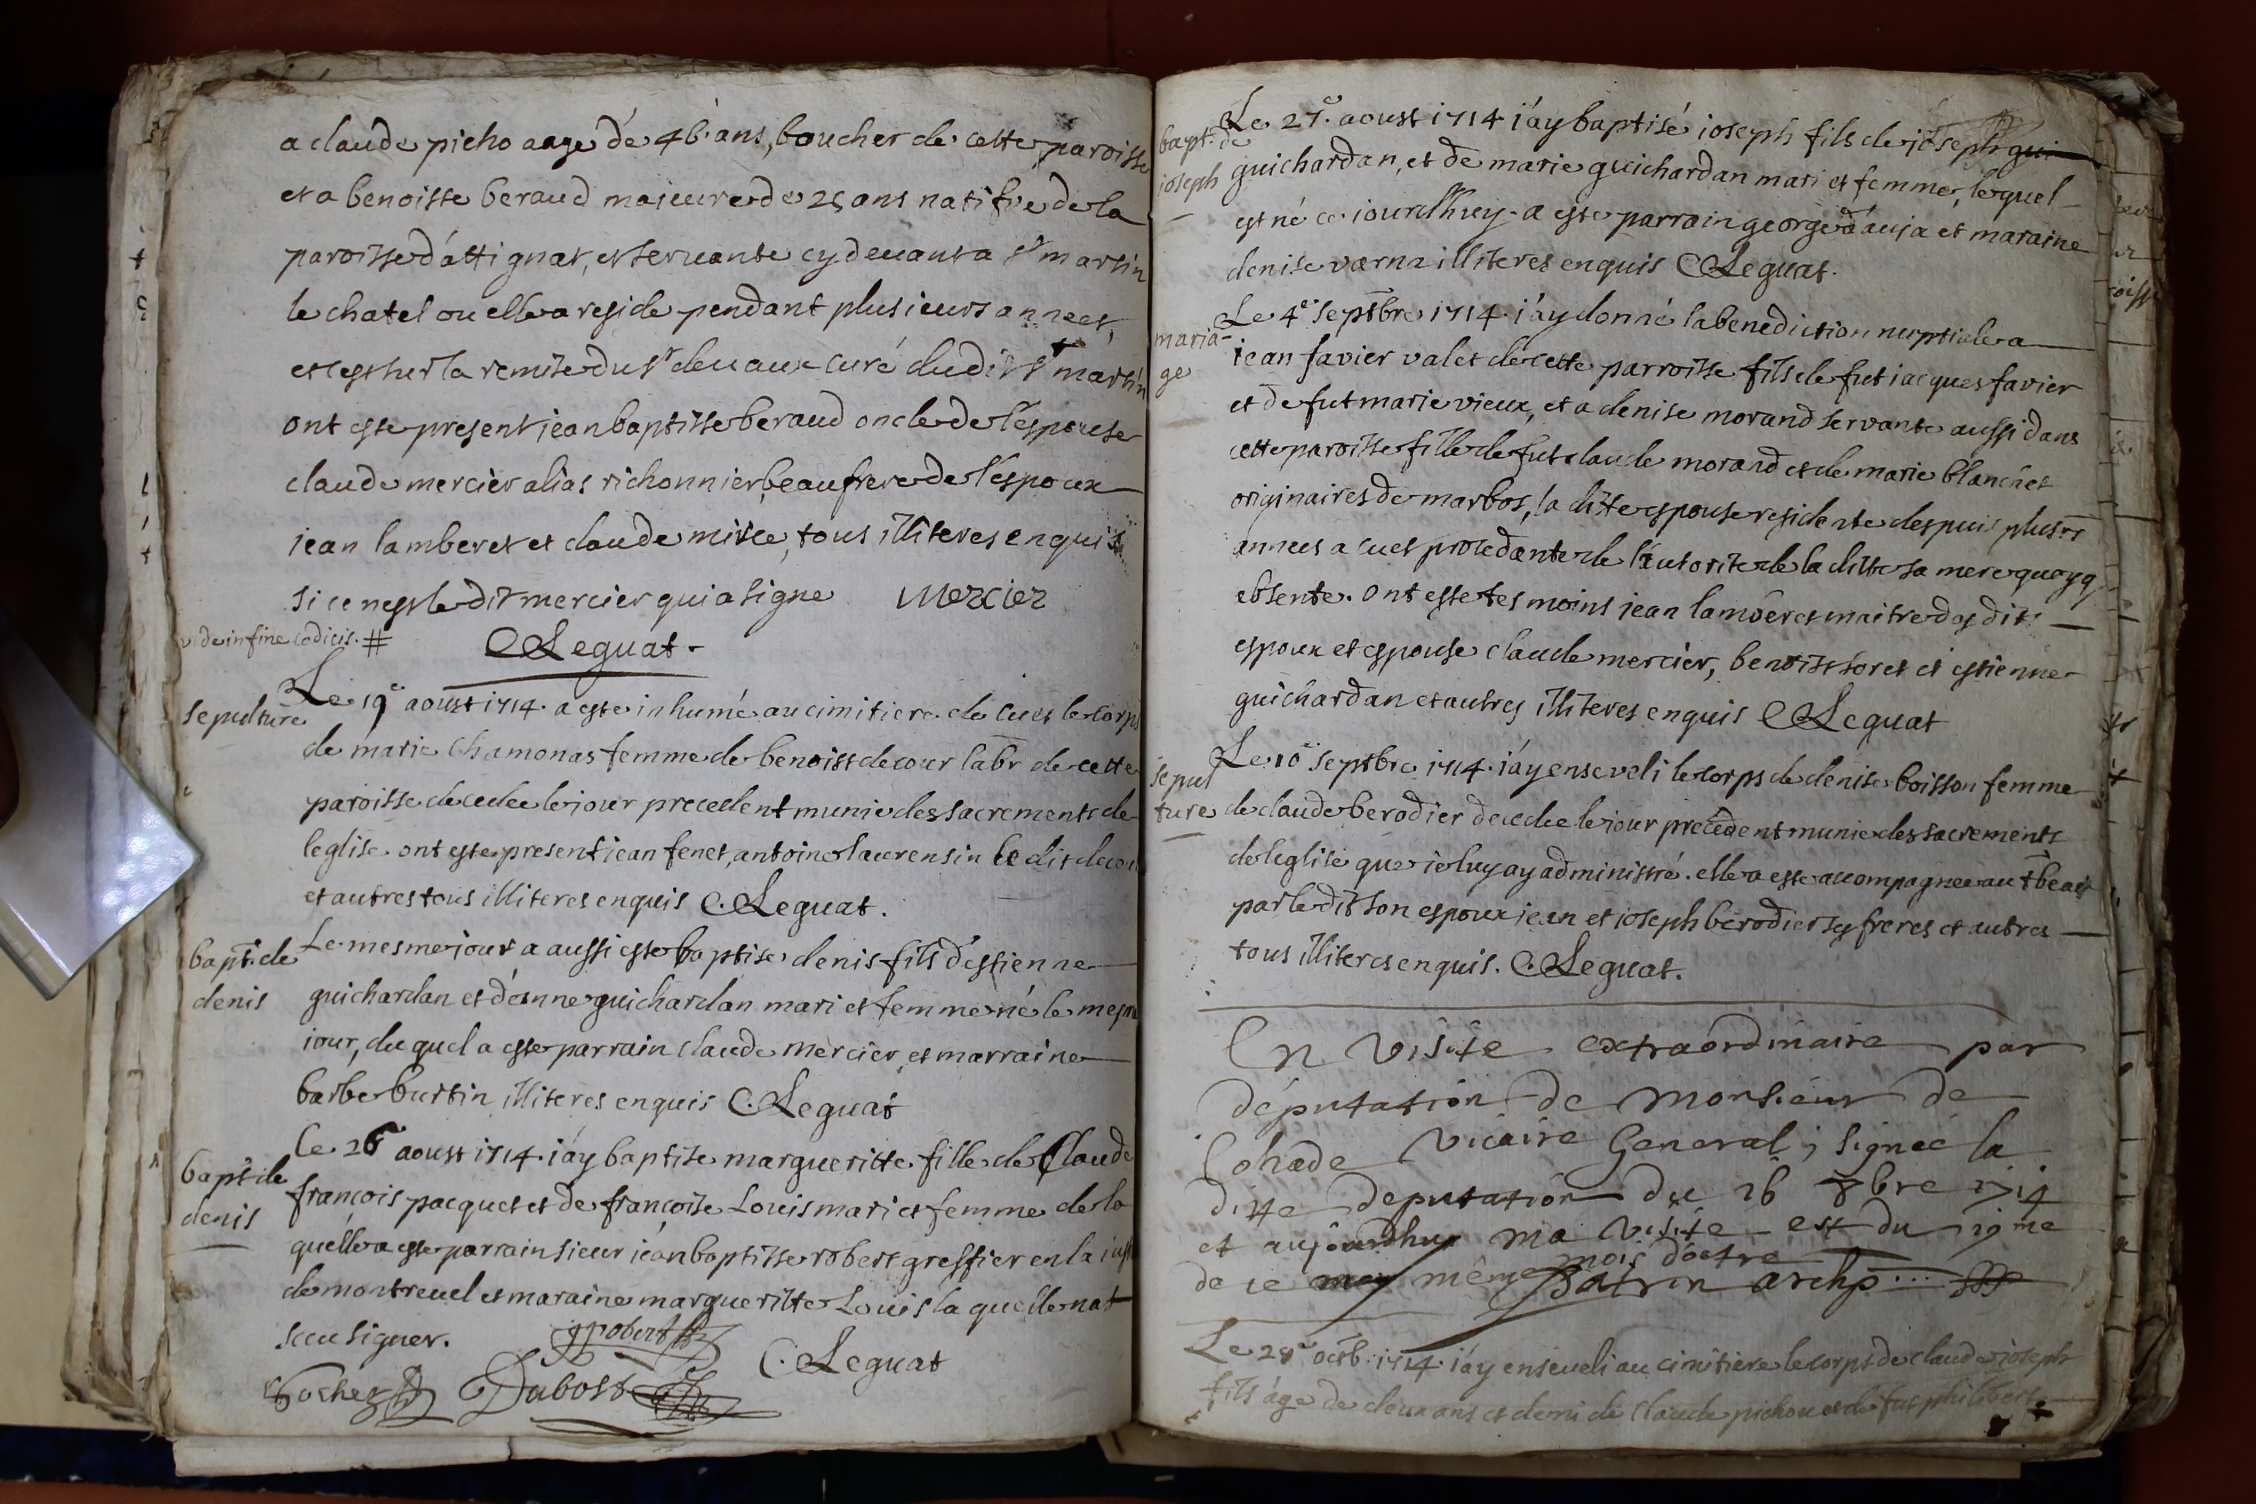 a claude picho aage dé 46 ans, boucher de cette paroisse
et a benoiste beraud majeure de 25 ans natifve de la
paroisse d'áttignat, et servante cy devant a st martin
le chatel ou elle a reside pendant plusieurs années,
et c'est sur la remise du sr devaux curé dudit st martin
ont este present jean baptiste beraud oncle de l'espouse
claude mercier alias richonnier, beaufrere de l'espoux
jean lamberet et claude mivee, tous illiteres enquis
si ce n'est le dit mercier qui a signe mercier
vide in fine codicis. # C Leguat.
sepulture
Le 19e aoust 1714. a este inhumé au cimitiere de cuet le corps
de marie chamonas femme de benoist decour labr de cette
paroisse decedee le jour precedent munie des sacrements de
leglise. ont este present jean fenet, antoine laurensin le dit decour
et autres tous illiteres enquis C. Leguat.
bapt. de denis
Le mesme jour a aussi este baptise denis fils d'estienne
guichardan et d'anne guichardan mari et femme né le mesme
iour, du quel a este parrain claude mercier et marraine
barbe burtin illiteres enquis C. Leguat
bapt de denis
Le 26 aoust 1714. i'áy baptise margueritte fille de Claude
françois pacquet et de françoise Louis mari et femme de la
quelle a este parrain sieur jean baptiste robert greffier en la just
de montrevel et maraine margueritte Louis la quelle n'at
sceu signer. Robert
C. Leguat
Dubost
bapt. de ioseph
Le 27e. aoust 1714 i'áy baptisé ioseph fils de joseph gui
guichardan, et de marie guichardan mari et femme, lequel
est né ce iourd'huy. a este parrain george dáuja et maraine
denise varna illiteres enquis C Leguat.
maria-
ge
Le 4e. septbre 1714. i'áy donné la benediction nuptiale a
jean favier valet de cette parroisse fils de fut jacques favier
et de fut marie vieux, et a denise morand servante aussi dans
cette paroisse fille de fut claude morand et de marie blanchet
originaires de marbos, la dite espouse residente despuis plusrs
annees a cuet procedante de l'áutorite de la ditte sa mere quoyq
absente. ont este tesmoins jean lamberet maitre des dits
espoux et espouse claude mercier, benoist soret et estienne
guichardan et autres illiteres enquis C Leguat
sepul
ture
Le 10e septbre 1714. i'áy enseveli le corps de denise boisson femme
de claude berodier decedee le jour precedent munie des sacrements
de leglise que je luy ay administré. elle a este accompagnee au tbeau
par le dit son espoux jean et joseph berodier ses freres et autres
tous illiteres enquis. C. Leguat.
En visite extraordinaire par
députation de monsieur de
Cohade vicaire General, signée la
ditte deputation du 16 8bre 1714
et aujourdhuy ma visite est du 19me
de ce may même mois d'octre
archp...
Le 28e octb. 1714. i'áy enseveli au cimitiere le corps de claude joseph
fils âge de deux ans et demi de claude pichou et de fut philiberte